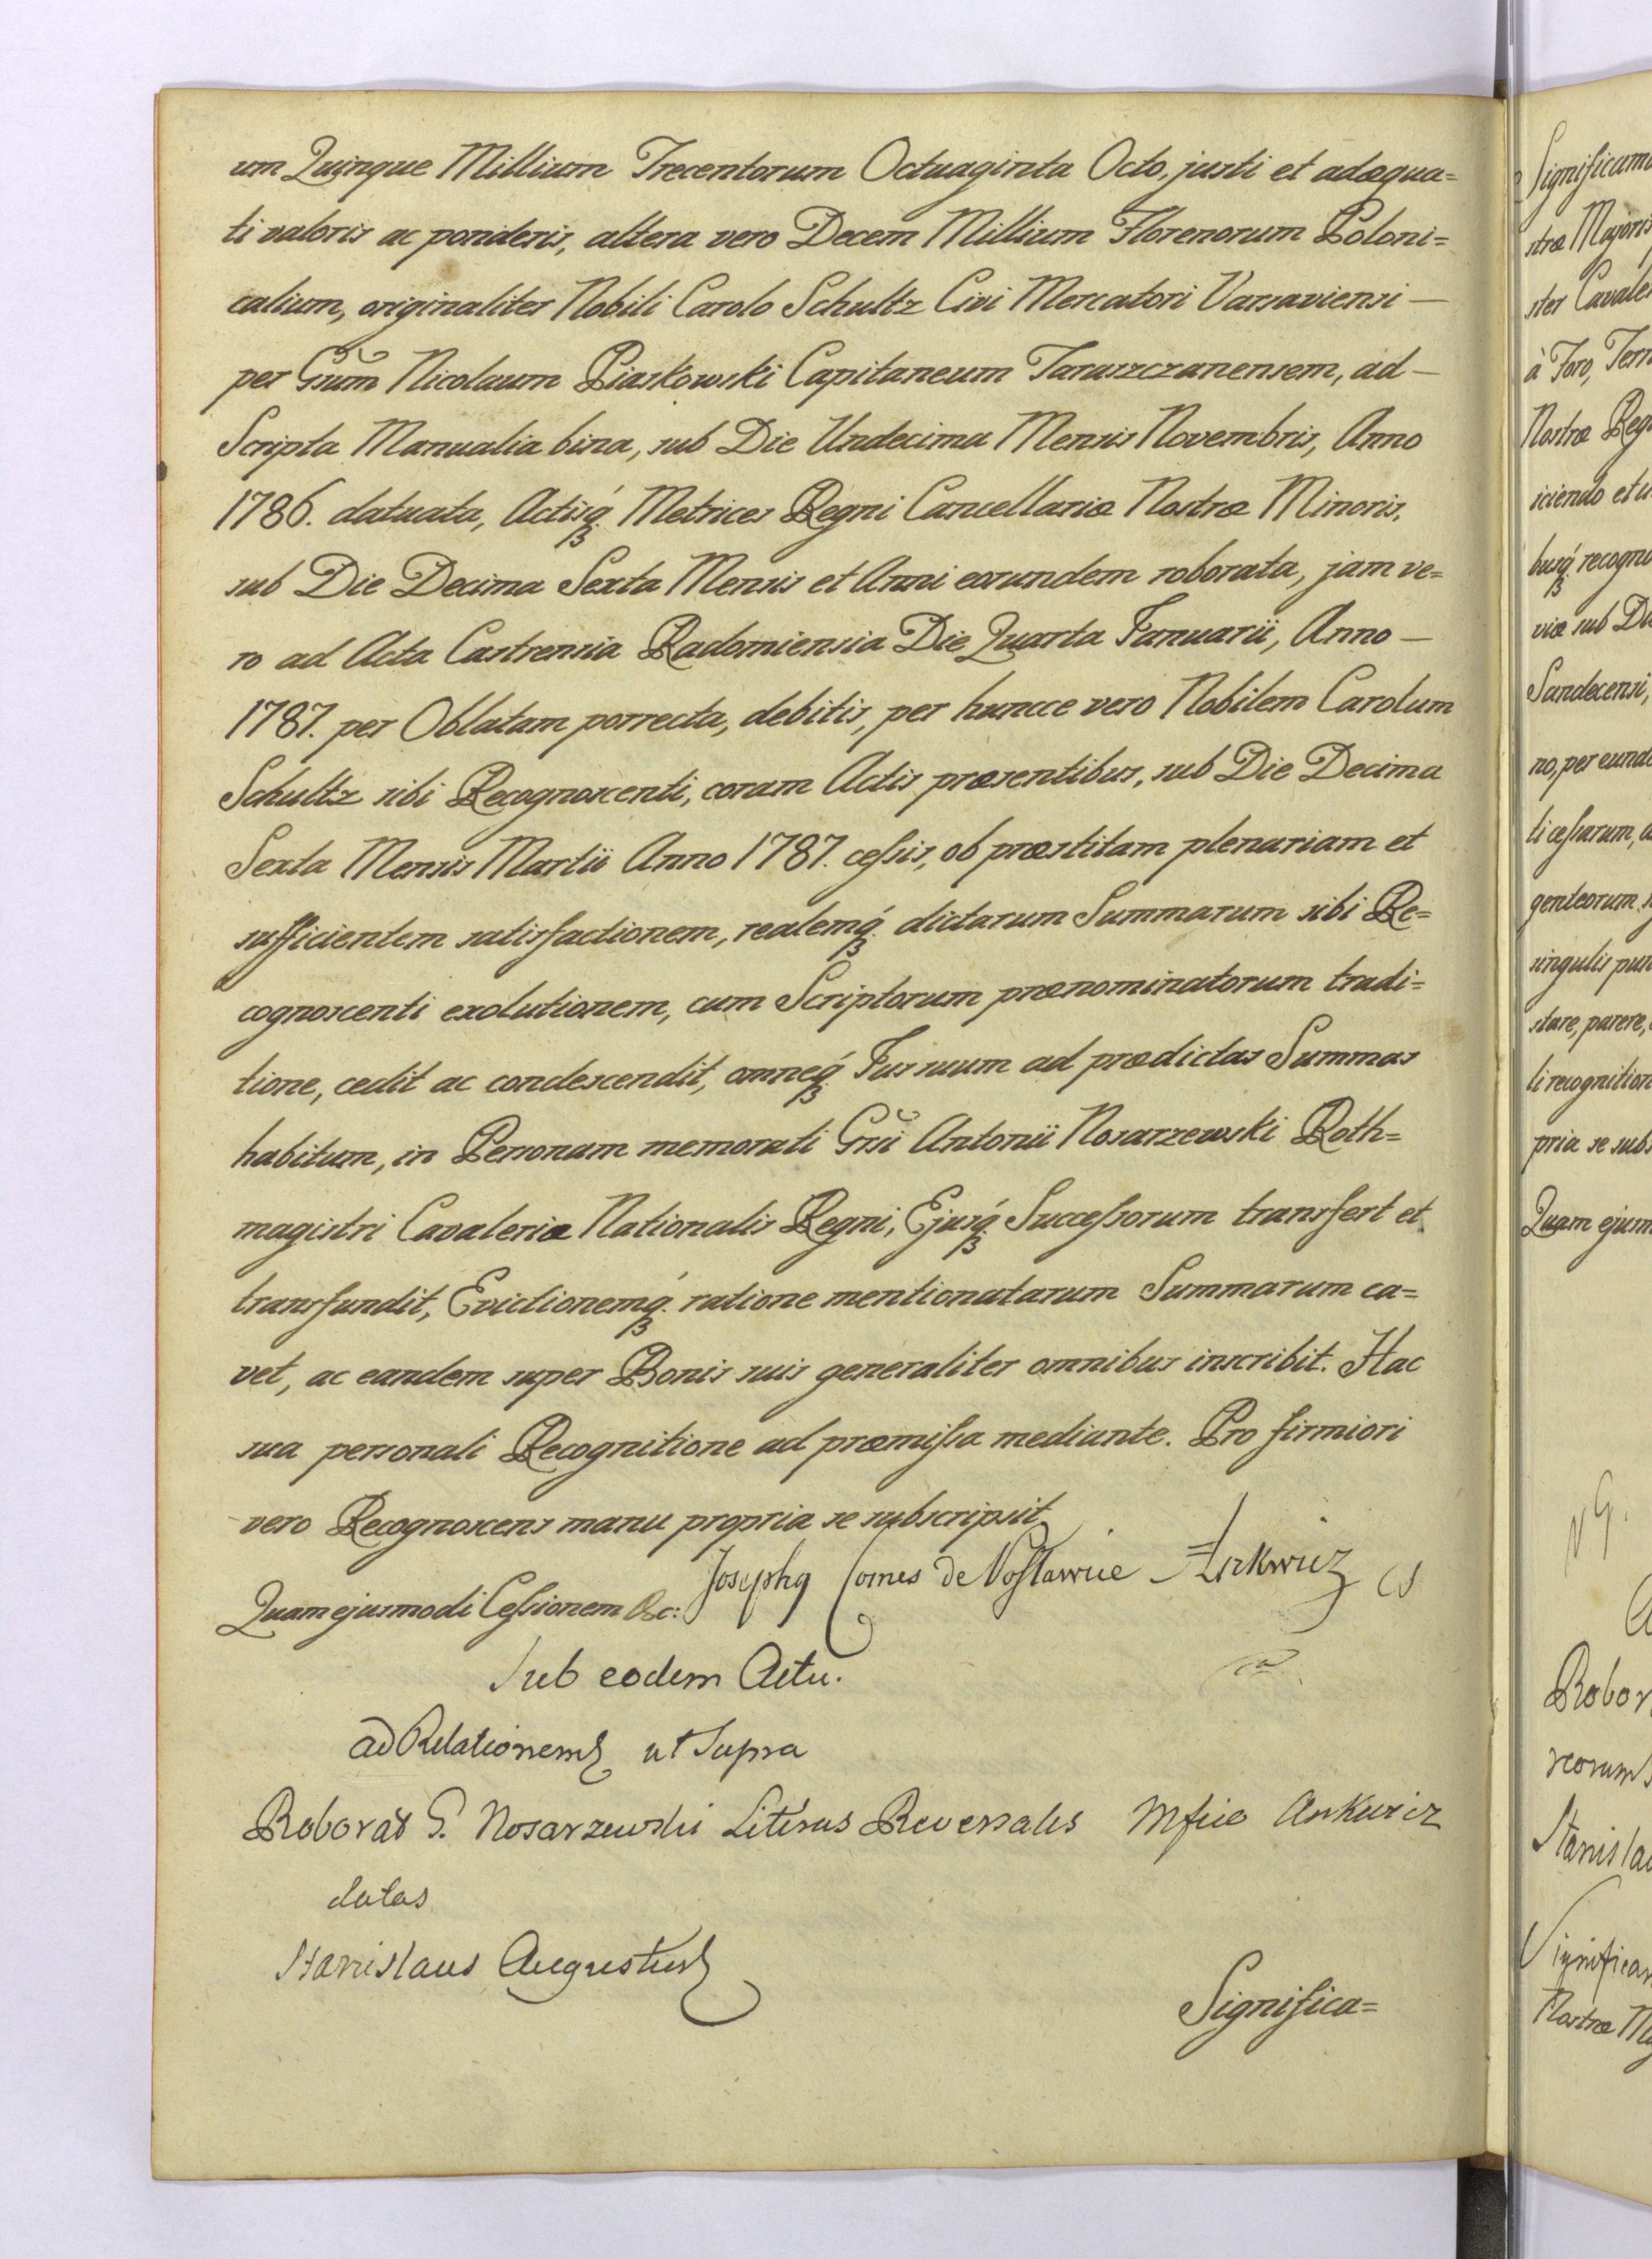 um Quinque Millium Trecentorum Octuaginta Octo, justi et adæqua=
ti valoris ac ponderis, altera vero Decem Millium Florenorum Poloni=
calium, originaliter Nobili Carolo Schultz Civi Mercatori Varsaviensi —
per Gsum Nicolaum Piaskowski Capitaneum Taraszczanensem, ad —
Scripta Manualia bina, sub Die Undecima Mensis Novembris, Anno
1786. datuata, Actisq́ Metrices Regni Cancellariæ Nostræ Minoris,
sub Die Decima Sexta Mensis et Anni eorundem roborata, jam ve=
ro ad Acta Castrensia Radomiensia Die Quarta Januarii, Anno —
1787. per Oblatam porrecta, debitis, per huncce vero Nobilem Carolum
Schultz sibi Recognoscenti, coram Actis præsentibus, sub Die Decima
Sexta Mensis Martii Anno 1787. cessis, ob præstitam plenariam et
sufficientem satisfactionem, realemq́ dictarum Summarum sibi Re=
cognoscenti exolutionem, cum Scriptorum prænominatorum tradi=
tione, cedit ac condescendit, omneq́ Jus suum ad prædictas Summas
habitum, in Personam memorati Gsi Antonii Nosarzewski Roth=
magistri Cavaleriæ Nationalis Regni, Ejusq́ Successorum transfert et
transfundit, Evictionemq́ ratione mentionatarum Summarum ca=
vet, ac eandem super Bonis suis generaliter omnibus inscribit. Hac
sua personali Recognitione ad præmissa mediante. Pro firmiori
vero Recognoscens manu propria se subscripsit.
Josephq Comes De Posławice Ankwicz CS
Quam ejusmodi Cessionem &c:
Sub eodem Actu.
ad Relationem ut Supra
Roborat G. Nosarzewski Literas Reversales Mfico Ankwicz
datas
Stanislaus Augustus
Significa=